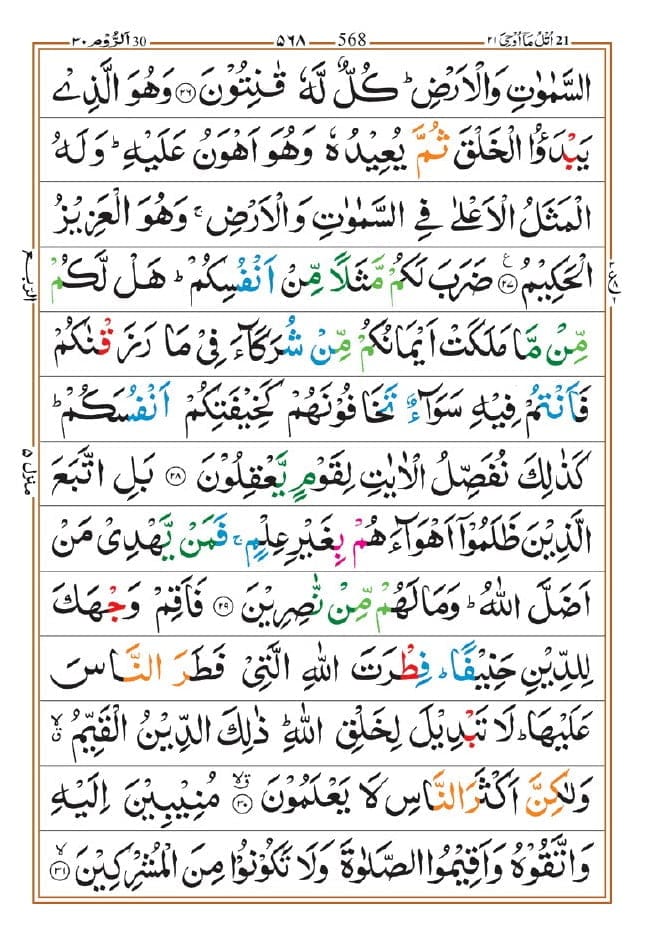 21 اُتْلُ مَاۤ اُوْحِیَ ٢١
568 ٥٦٨
30 اَلرُّوْم ٣٠
السَّمٰوٰتِ وَالْاَرْضِ ؕ كُلٌّ لَّهٗ قٰنِتُوْنَ ۝٢٦ وَهُوَ الَّذِیْ
یَبْدَؤُا الْخَلْقَ ثُمَّ یُعِیْدُهٗ وَهُوَ اَهْوَنُ عَلَیْهِ ؕ وَلَهُ
الْمَثَلُ الْاَعْلٰی فِی السَّمٰوٰتِ وَالْاَرْضِ ۚ وَهُوَ الْعَزِیْزُ
الْحَكِیْمُ ۝٢٧ ضَرَبَ لَكُمْ مَّثَلًا مِّنْ اَنْفُسِكُمْ ؕ هَلْ لَّكُمْ
مِّنْ مَّا مَلَكَتْ اَیْمَانُكُمْ مِّنْ شُرَكَآءَ فِیْ مَا رَزَقْنٰكُمْ
فَاَنْتُمْ فِیْهِ سَوَآءٌ تَخَافُوْنَهُمْ كَخِیْفَتِكُمْ اَنْفُسَكُمْ ؕ
كَذٰلِكَ نُفَصِّلُ الْاٰیٰتِ لِقَوْمٍ یَّعْقِلُوْنَ ۝٢٨ بَلِ اتَّبَعَ
الَّذِیْنَ ظَلَمُوْۤا اَهْوَآءَهُمْ بِغَیْرِ عِلْمٍ ۚ فَمَنْ یَّهْدِیْ مَنْ
اَضَلَّ اللهُ ؕ وَمَا لَهُمْ مِّنْ نّٰصِرِیْنَ ۝٢٩ فَاَقِمْ وَجْهَكَ
لِلدِّیْنِ حَنِیْفًا ؕ فِطْرَتَ اللهِ الَّتِیْ فَطَرَ النَّاسَ
عَلَیْهَا ؕ لَا تَبْدِیْلَ لِخَلْقِ اللهِ ؕ ذٰلِكَ الدِّیْنُ الْقَیِّمُ ۙۗ
وَلٰكِنَّ اَكْثَرَ النَّاسِ لَا یَعْلَمُوْنَ ۝٣٠ مُنِیْبِیْنَ اِلَیْهِ
وَاتَّقُوْهُ وَاَقِیْمُوا الصَّلٰوةَ وَلَا تَكُوْنُوْا مِنَ الْمُشْرِكِیْنَ ۝٣١
الرّبع
منزل ٥